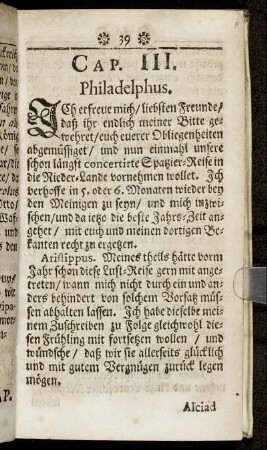 39
CAP. III.
Philadelphus.
ICh erfreue mich/ liebsten Freunde/
daß ihr endlich meiner Bitte ge-
wehret/ euch euerer Obliegenheiten
abgemüssiget/ und nun einmahl unsere
schon längst concertirte Spazier-Reise in
die Nieder-Lande vornehmen wollet. Ich
verhoffe in 5. oder 6. Monaten wieder bey
den Meinigen zu seyn/ und mich inzwi-
schen/ und da ietzo die beste Jahrs-Zeit an-
gehet/ mit euch und meinen dortigen Be-
kanten recht zu ergetzen.
Aristippus. Meines theils hätte vorm
Jahr schon diese Lust-Reise gern mit ange-
treten/ wann mich nicht durch ein und an-
ders behindert von solchem Vorsatz müs-
sen abhalten lassen. Ich habe dieselbe mei-
nem Zuschreiben zu Folge gleichwohl die-
sen Frühling mit fortsetzen wollen / und
wündsche/ daß wir sie allerseits glücklich
und mit gutem Vergnügen zurück legen
mögen.
Alciad